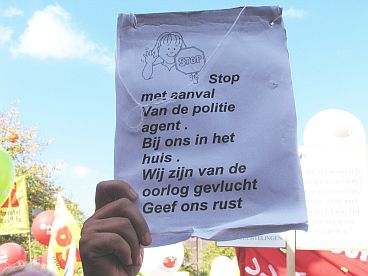 STOP
Stop
met aanval
Van de politie
agent .
Bij ons in het
huis .
Wij zijn van de
oorlog gevlucht
Geef ons rust